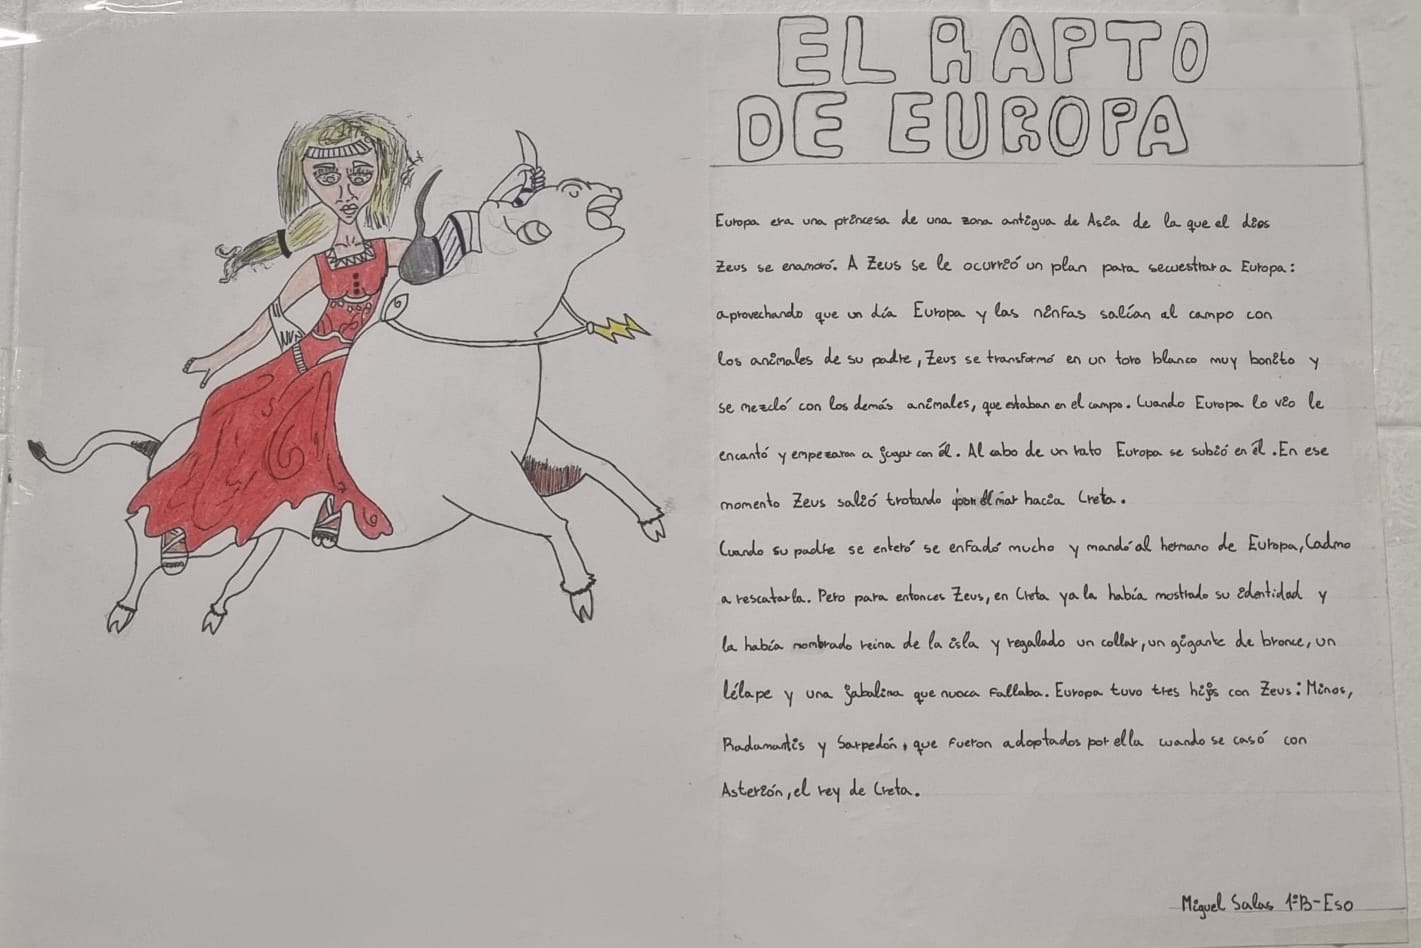 EL RAPTO
DE EUROPA
Europa era una princesa de una zona antigua de Asia de la que el dios
Zeus se enamoró. A Zeus se le ocurrió un plan para secuestrar a Europa:
aprovechando que un día Europa y las ninfas salían al campo con
los animales de su padre, Zeus se transformó en un toro blanco muy bonito y
se mezcló con los demás animales, que estaban en el campo. Cuando Europa lo vio le
encantó y empezaron a jugar con él. Al cabo de un rato Europa se subió en él. En ese
momento Zeus salió trotando por el mar hacia Creta.
Cuando su padre se enteró se enfadó mucho y mandó al hermano de Europa, Cadmo
a rescatarla. Pero para entonces Zeus, en Creta ya la había mostrado su identidad y
la había nombrado reina de la isla y regalado un collar, un gigante de bronce, un
lélape y una jabalina que nunca fallaba. Europa tuvo tres hijos con Zeus: Minos,
Radamantis y Sarpedón, que fueron adoptados por ella cuando se casó con
Asterión, el rey de Creta.
Miguel Salas 1ºB-Eso